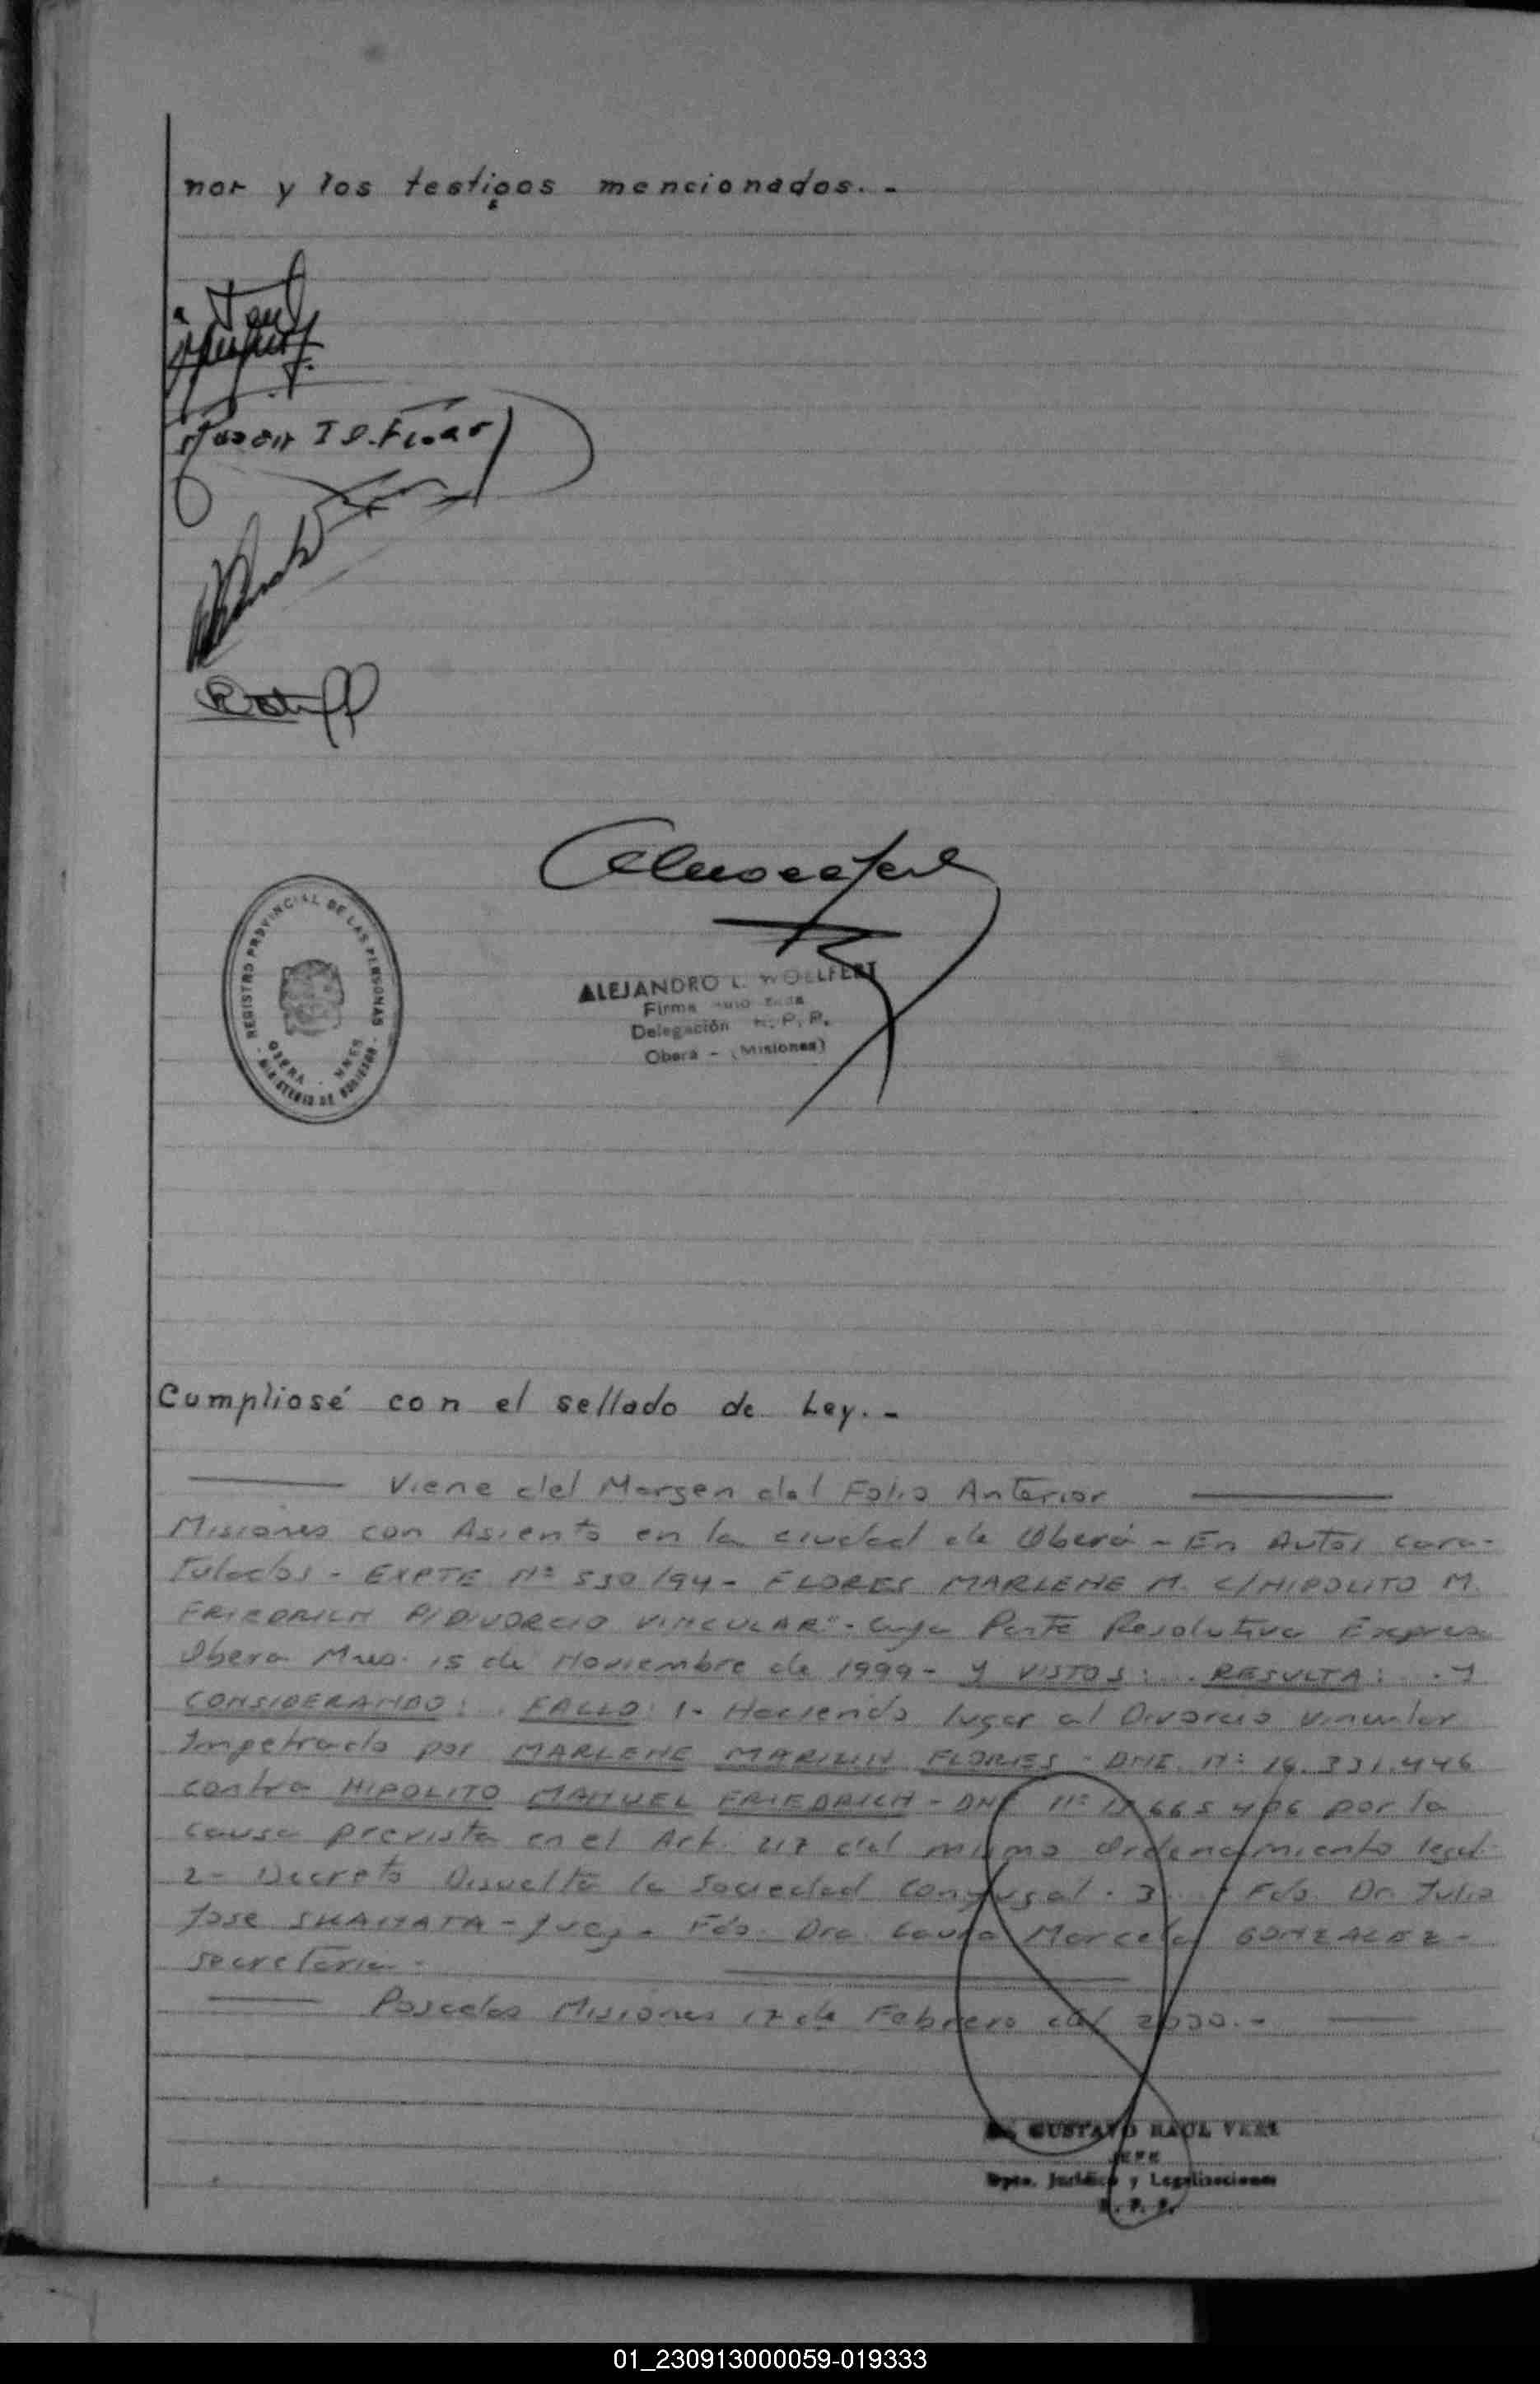 nor y los testigos mencionados. -
REGISTRO PROVINCIAL DE LAS PERSONAS
OBERA - MNES
MINISTERIO DE GOBIERNO
ALEJANDRO L. WOLLFERT
Firma
Delegación R. P. P.
Oberá - (Misiones)
Cumpliosé con el sellado de Ley. -
Viene del Margen del Folio Anterior
Misiones con Asiento en la ciudad de Oberá - En Autos cara-
tulados - EXPTE Nº 530/94 - FLORES MARLENE M. C/HIPOLITO M.
FRIEDRICH P/DIVORCIO VINCULAR" - Cuya Parte Resolutiva Expresa
Obera Mnes. 15 de Noviembre de 1999 - Y VISTOS: . . RESULTA: . . Y
CONSIDERANDO: . . FALLO: 1- Haciendo lugar al Divorcio Vincular
Impetrado por MARLENE FLORES - DNI. Nº 16.331.446
contra HIPOLITO MANUEL FRIEDRICH - DNI Nº por la
causa prevista en el Art. 217 del mismo Ordenamiento legal-
2- Decreto Disuelta la Sociedad Conyugal. 3 . . - Fdo. Dr. Julio
Jose - Juez - Fdo. Dra. Laura Marcela GONZALEZ -
Secretaria -
Posadas Misiones 17 de Febrero del 2000. -
GUSTAVO RAUL
JEFE
Dpto. Jurídico y Legalizaciones
R. P. P.
01_230913000059-019333